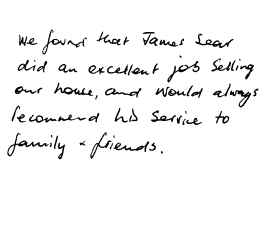 We found that James Sear
did an excellent job selling
our house, and would always
recommend his service to
family & friends.